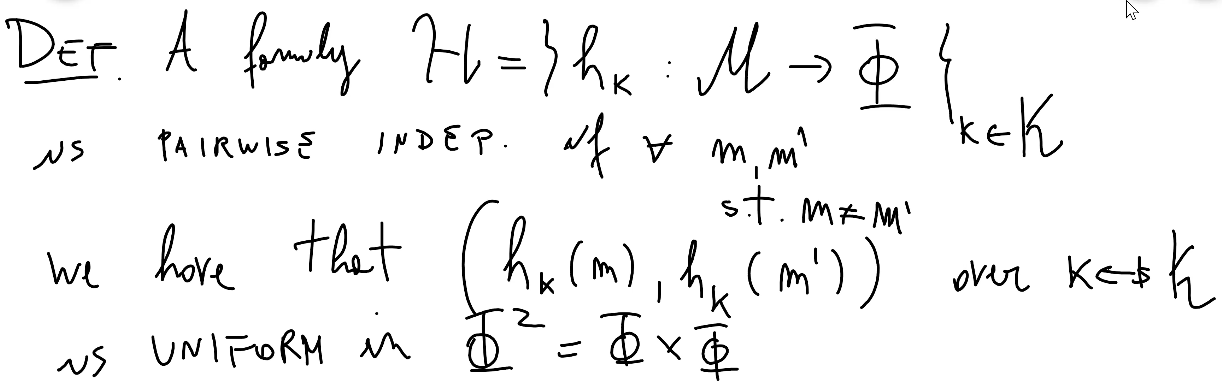 DEF. A family H = { h_K : M → Φ }_{K∈K}
is PAIRWISE INDEP. if ∀ m, m'
s.t. m ≠ m'
we have that (h_K(m), h_K(m')) over K ←$ K
is UNIFORM in Φ² = Φ × Φ